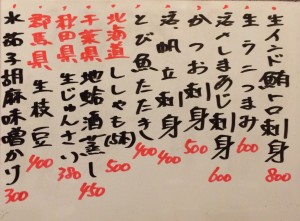 生インド鮪トロ刺身 800
生うにつまみ 600
活〆しまあじ刺身 600
かつお刺身 500
活帆立刺身 400
とび魚たたき 400
北海道 ししゃも(5本) 500
千葉県 地蛤酒蒸し 450
秋田県 生じゅんさい 380
群馬県 生枝豆 400
水茄子胡麻味噌かけ 300